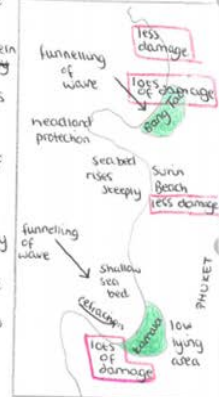 less
damage
funnelling
of
wave
lots
of damage
Bang Tao
headland
protection
sea bed
rises
steeply
Surin
Beach
less damage
funnelling
of
wave
shallow
sea
bed
refraction
PHUKET
Kamala
low
lying
area
lots
of
damage